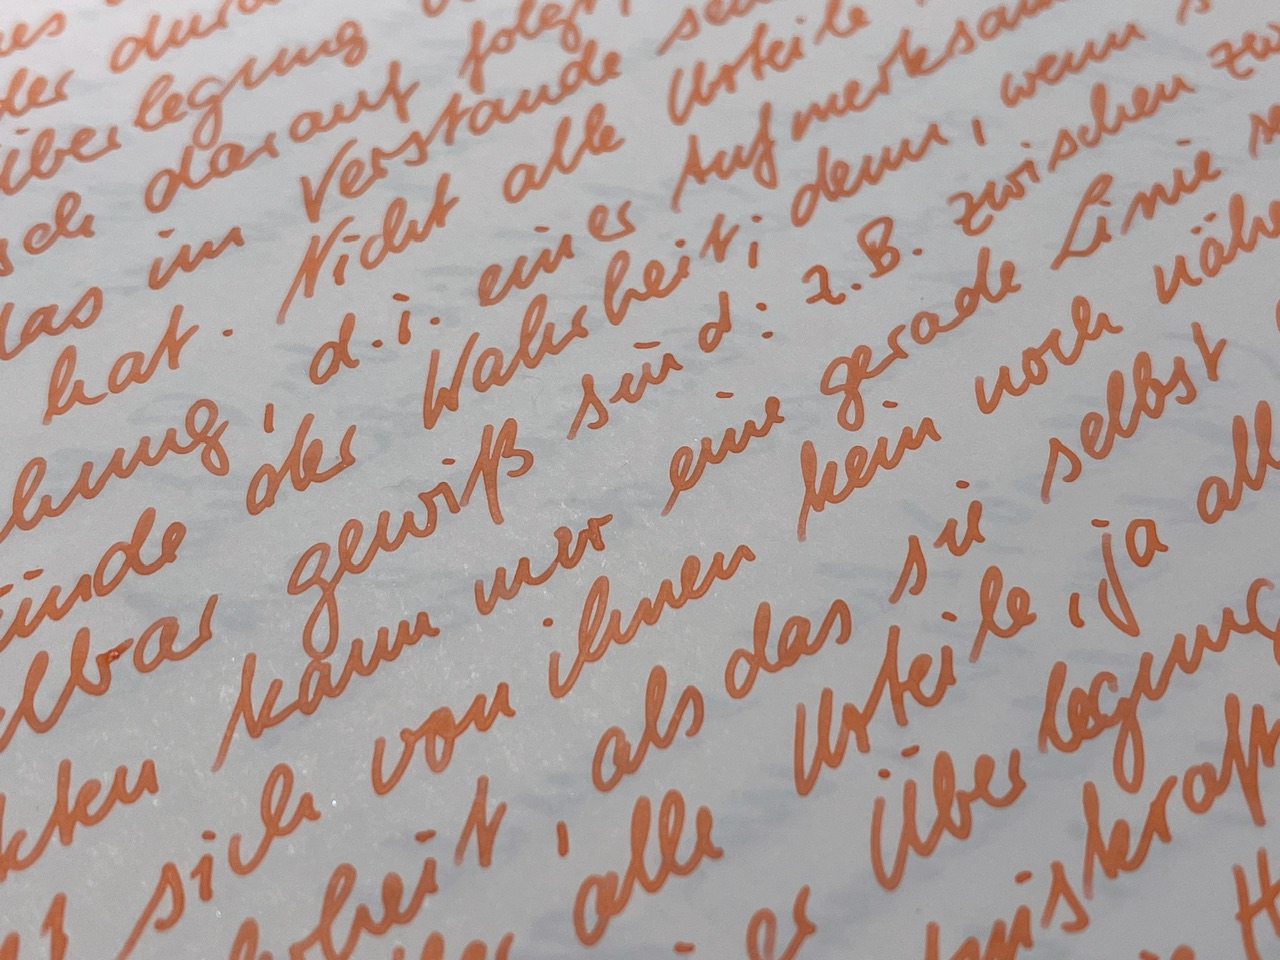 der durch
Überlegung
sch darauf folgt,
das im Verstande sei
hat. Nicht alle Urteile
chung, d.i. einer Aufmerksam
ünde der Wahrheit; denn, wenn s
lbar gewiß sind: z.B. zwischen zw
kten kann nur eine gerade Linie se
sich von ihnen kein noch nähe
hrheit, als das sie selbst
er alle Urteile, ja all
er Überlegung
tniskraft